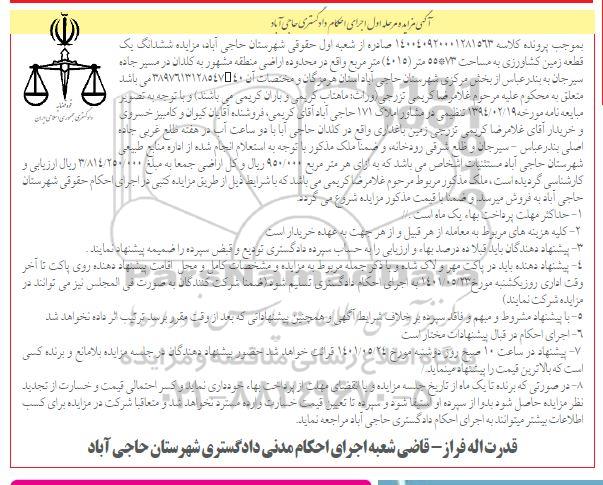 آگهی مزایده و مرحله اول اجرای احکام دادگستری حاجی آباد
بموجب پرونده کلاسه ۱۴۰۰۴۰۹۲۰۰۰۱۲۸۱۵۶۳ صادره از شعبه اول حقوقی شهرستان حاجی آباد، مزایده ششدانگ یک
قطعه زمین کشاورزی به مساحت ۷۳*۵۵ متر (۴۰۱۵) متر مربع واقع در محدوده اراضی منطقه مشهور به کلدان در مسیر جاده
سیرجان به بندرعباس از بخش مرکزی شهرستان حاجی آباد استان هرمزگان و مختصات آن می باشد
متعلق به محکوم علیه مرحوم غلامرضا کریمی تزرجی (وراث: ماهتاب کریمی و باران کریمی می باشند) و با توجه به تصویر
مبایعه نامه مورخه ۱۳۹۴/۰۲/۱۹ تنظیمی در مشاور املاک ۱۷۱ حاجی آباد آقای کریمی، فروشنده آقایان کیوان و کامبیز خسروی
و خریدار آقای غلامرضا کریمی تزرجی زمین باغداری واقع در کلدان حاجی آباد با دو ساعت آب در هفته ضلع غربی جاده
اصلی بندرعباس - سیرجان و ضلع شرقی رودخانه، و ضمنا ملک مذکور با توجه به استعلام انجام شده از اداره منابع طبیعی
شهرستان حاجی آباد مستثنیات اشخاص می باشد که به ازای هر متر مربع ۹۵۰/۰۰۰ ریال و کل اراضی جمعا به مبلغ ۳/۸۱۴/۲۵۰/۰۰۰ ریال ارزیابی و
کارشناسی گردیده است، ملک مذکور مربوط مرحوم غلامرضا کریمی می باشد که با شرایط ذیل از طریق مزایده کتبی در اجرای احکام حقوقی شهرستان
حاجی آباد به فروش میرسد. و ضمنا با قیمت مذکور مزایده شروع می گردد.
۱- حداکثر مهلت پرداخت بهاء یک ماه است .
۲- کلیه هزینه های مربوط به معامله از هر قبیل و از هر جهت به عهده خریدار است
۳- پیشنهاد دهندگان باید قبلا ده درصد بهاء و ارزیابی را به حساب سپرده دادگستری تودیع و قبض سپرده را ضمیمه پیشنهاد نمایند .
۴- پیشنهاد دهنده باید در پاکت مهر و لاک شده و با ذکر جمله مربوط به مزایده و مشخصات کامل و محل اقامت پیشنهاد دهنده روی پاکت تا آخر
وقت اداری روز یکشنبه مورخ ۱۴۰۱/۰۵/۲۳ به اجرای احکام دادگستری تسلیم شود(ضمنا شرکت کنندگان به صورت فی المجلس نیز می توانند در
مزایده شرکت نمایند)
۵- با پیشنهاد مشروط و مبهم و فاقد سپرده بر خلاف شرایط آگهی و همچنین پیشنهاداتی که بعد از وقت مقرر برسد ترتیب اثر داده نخواهد شد
۶- اجرای احکام در قبال پیشنهادات مختار است
۷- پیشنهاد در ساعت ۱۰ صبح روز دوشنبه مورخ ۱۴۰۱/۰۵/۲۴ قرائت خواهد شد. حضور پیشنهاد دهندگان در جلسه مزایده بلامانع و برنده کسی
است که بالاترین قیمت را پیشنهاد مینماید./
۸- در صورتی که برنده تا یک ماه از تاریخ جلسه مزایده و یا انقضای مهلت از پرداخت بهاء خودداری نماید و کسر احتمالی قیمت و خسارت از تجدید
نظر مزایده حاصل شود بدوا از سپرده او استیفا شود و سپرده تا تعیین قیمت خسارت وارده مسترد نخواهد شد و متعاقبا شرکت در مزایده برای کسب
اطلاعات بیشتر میتوانند به اجرای احکام دادگستری حاجی آباد مراجعه نماید.
قدرت اله فراز - قاضی شعبه اجرای احکام مدنی دادگستری شهرستان حاجی آباد